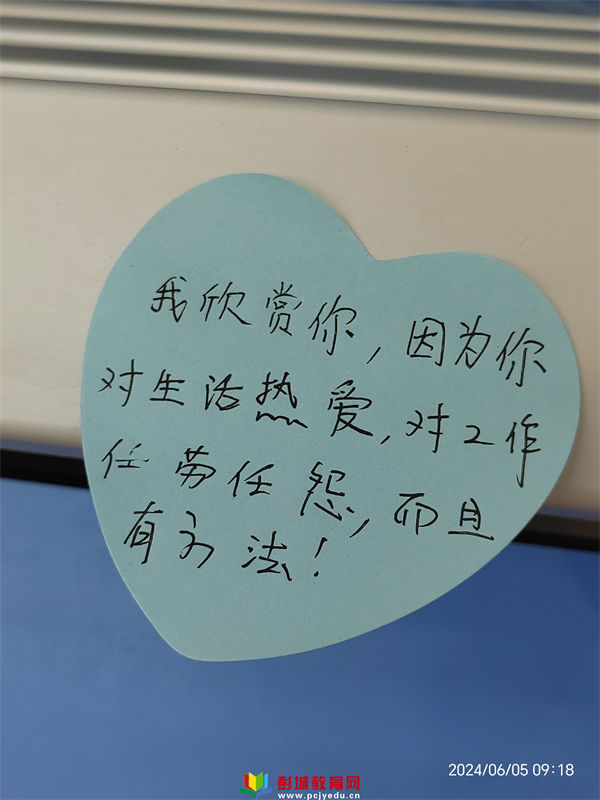 我欣赏你，因为你
对生活热爱，对工作
任劳任怨，而且
有方法！
2024/06/05 09:18
彭城教育网
www.pcjyedu.cn